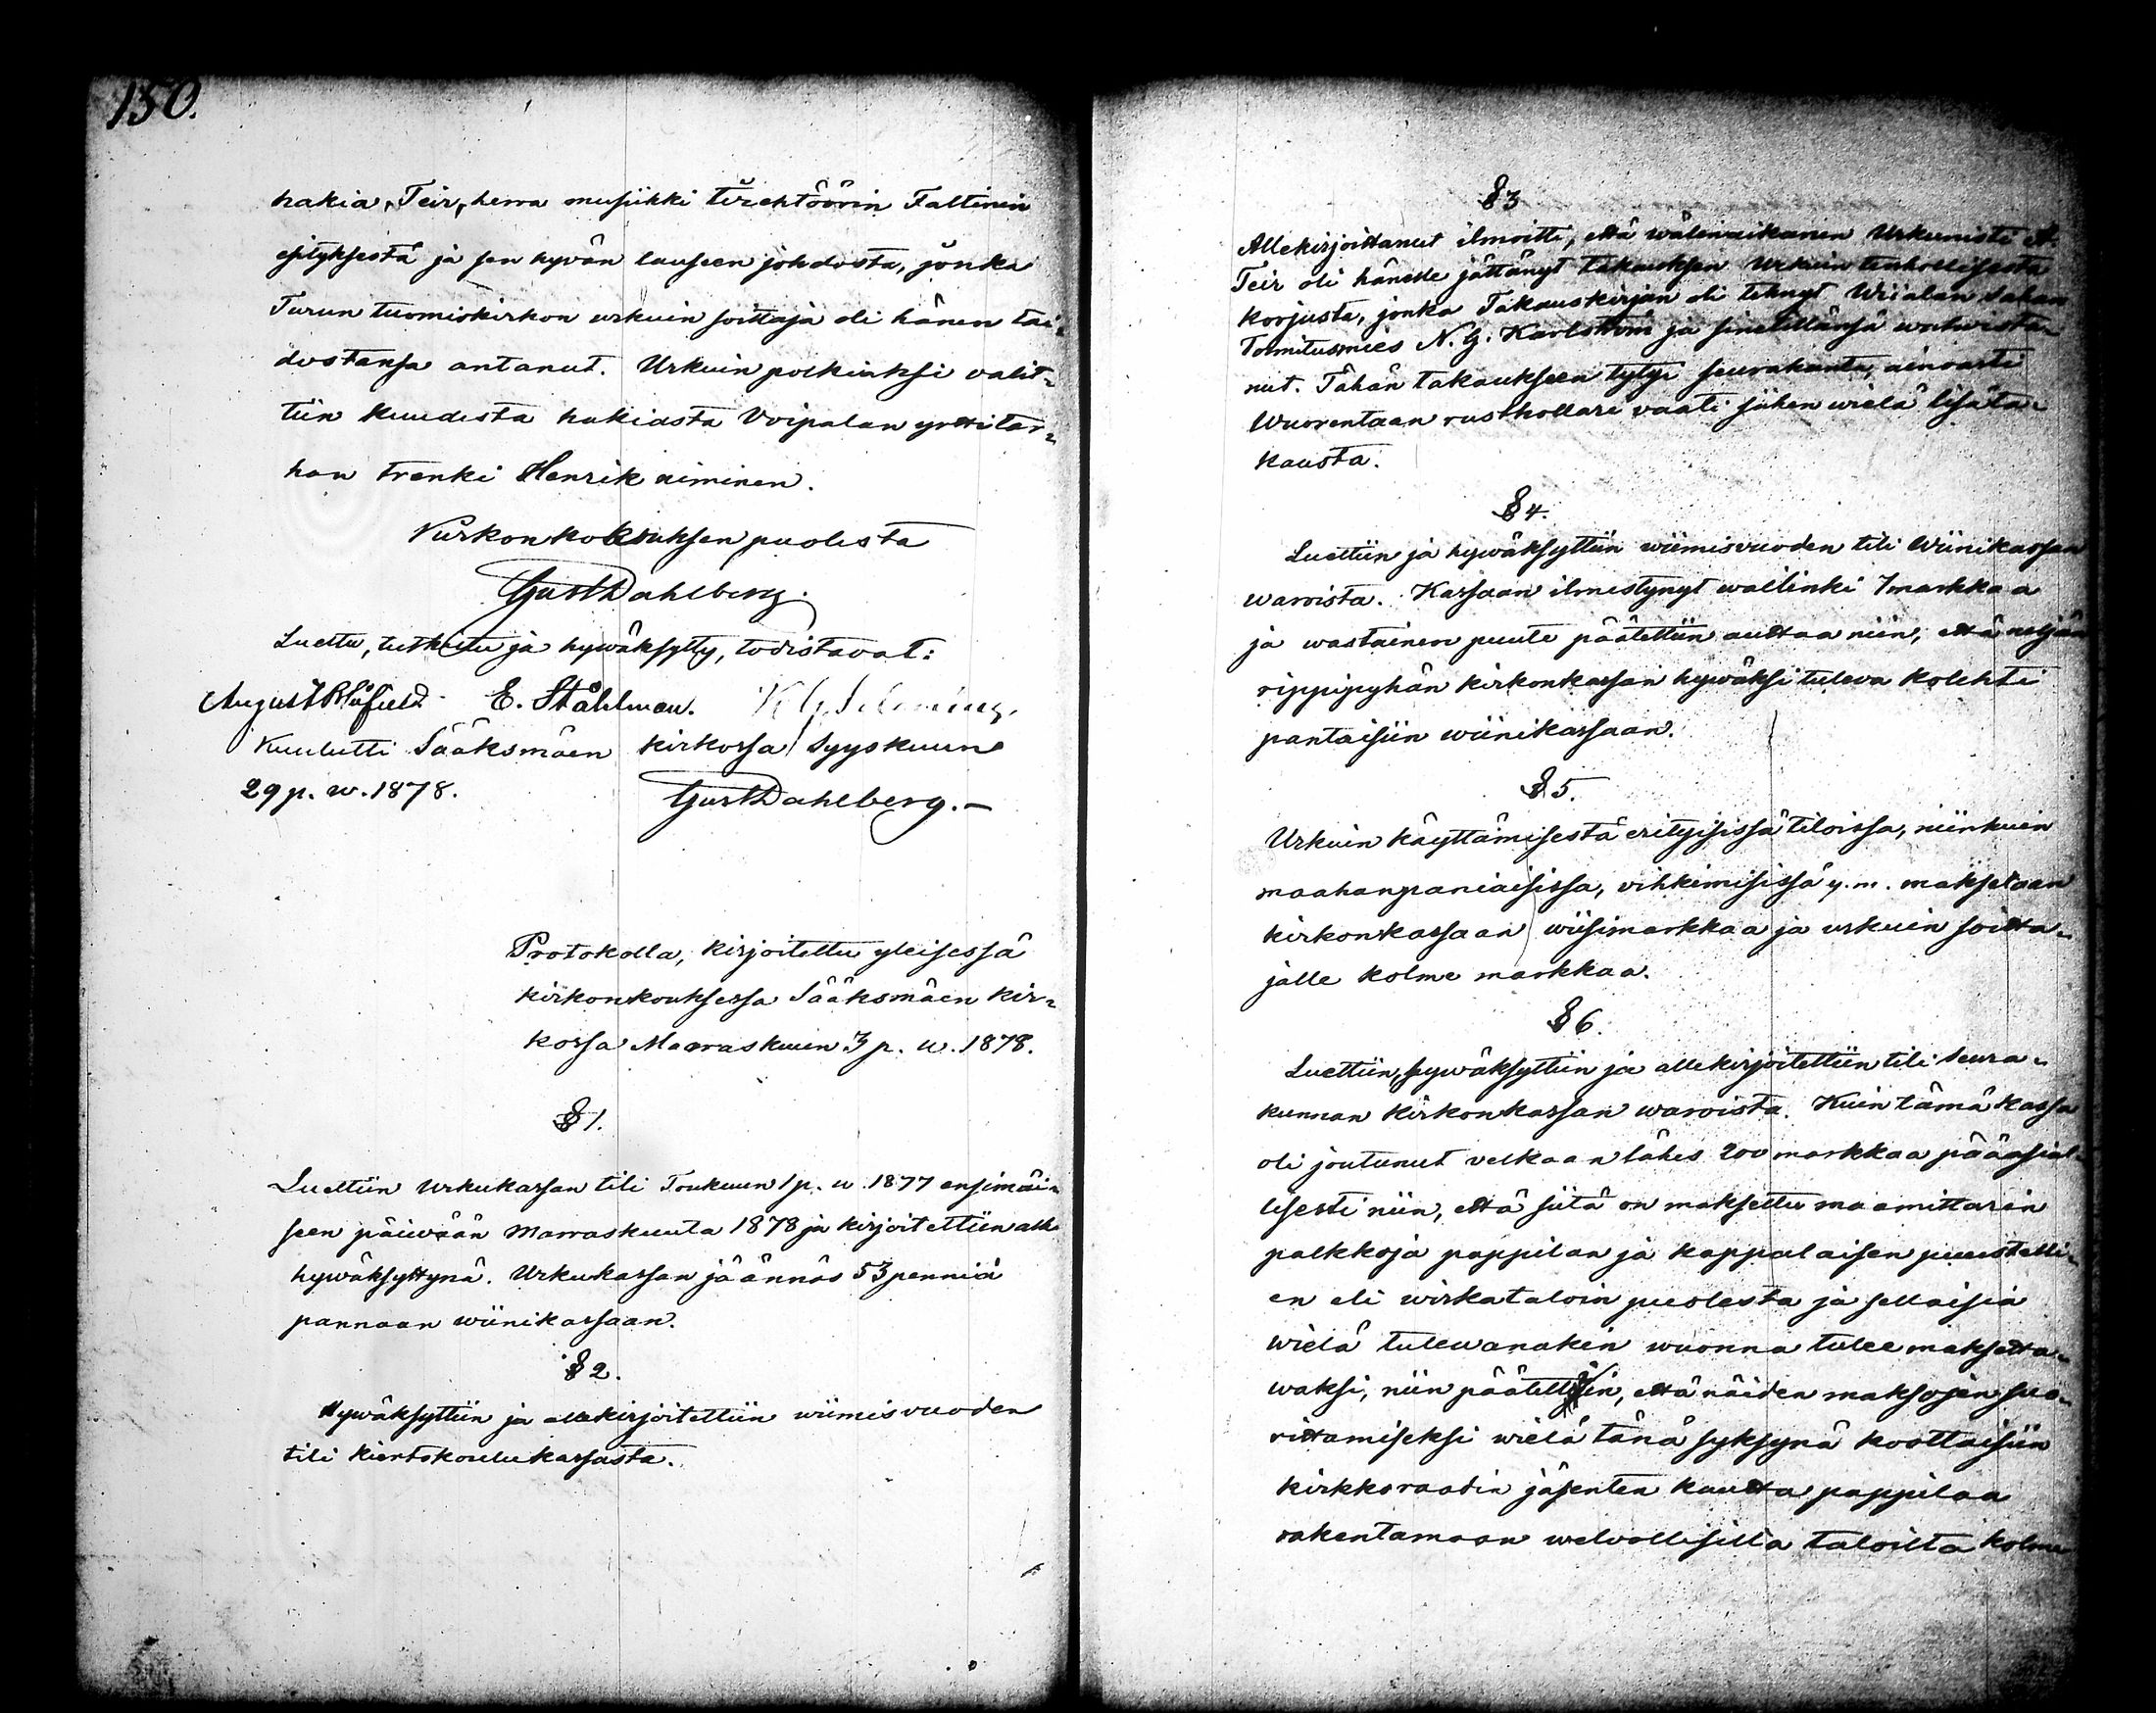 150.
hakia, Teir, herra musiikki tirehtöörin Faltinin
esityksestä ja sen hyvän lauseen johdosta, jonka
Turun tuomiokirkon urkuin soittaja oli hänen tai-
dostansa antanut. Urkuin polkiaksi valit-
tiin kuudesta hakiasta Voipalan yrttitar-
han trenki Henrik niminen.
Kirkonkokouksen puolesta
Gust Dahlberg.
Luettu, tutkittu ja hywäksytty, todistavat:
August E. Ståhlman.
Kuulutti Sääksmäen kirkossa Syyskuun
29 p. w. 1878. Gust Dahlberg.—
Protokolla, kirjoitettu yleisessä
kirkonkouksessa Sääksmäen kir-
kossa Marraskuun 3 p. w. 1878.
§ 1.
Luettiin Urkukassan tili Toukuun 1 p. w. 1877 ensimäi-
seen päiwään Marraskuuta 1878 ja kirjoitettiin alle
hywäksyttynä. Urkukassan jäännös 53 penniä
pannaan wiinikassaan.
§ 2.
Hywäksyttiin ja allekirjoitettiin wiimisvuoden
tili kiertokoulukassasta.
§ 3
Allekirjoittanut ilmoitti, että wäliaikanen Urkunisti A.
Teir oli hänelle jättänyt takauksen Urkuin
korjusta, jonka Takauskirjan oli tehnyt Wiialan Sahan
Toimitusmies N. G. Karlström ja sinetillänsä wahwista-
nut. Tähän takaukseen tytyi seurakunta, ainoasti
Wuorentaan rusthollari vaati siihen wielä lisäta-
kausta.
§ 4.
Luettiin ja hywäksyttiin wiimisvuoden tili Wiinikassan
waroista. Kassaan ilmestynyt waillinki 7 markkaa
ja wastainen puute päätettiin auttaa niin, että neljän
rippipyhän kirkonkassan hywäksi tuleva kolehti
pantaisiin wiinikassaan.
§ 5.
Urkuin käyttämisestä erityisissä tiloissa, niinkuin
maahanpaniaisissa, vihkimisissä y.m. maksetaan
kirkonkassaan wiisimarkkaa ja urkuin soitta-
jalle kolme markkaa.
§ 6.
Luettiin, hywäksyttiin ja allekirjoitettiin tili Seura-
kunnan kirkonkassan waroista. Kuin tämä kassa
oli joutunut velkaan lähes 200 markkaa pääasial-
lisesti niin, että siitä on maksettu maamittarin
palkkoja pappilan ja kappalaisen puustelli-
en eli wirkataloin puolesta ja sellaisia
wielä tulewanakin wuonna tulee maksetta-
waksi, niin päätettiin, että näiden maksojen suo-
rittamiseksi wielä tänä syksynä koottaisiin
kirkkoraadin jäsenten kautta pappilaa
rakentamaan welvollisilla taloilta kolme